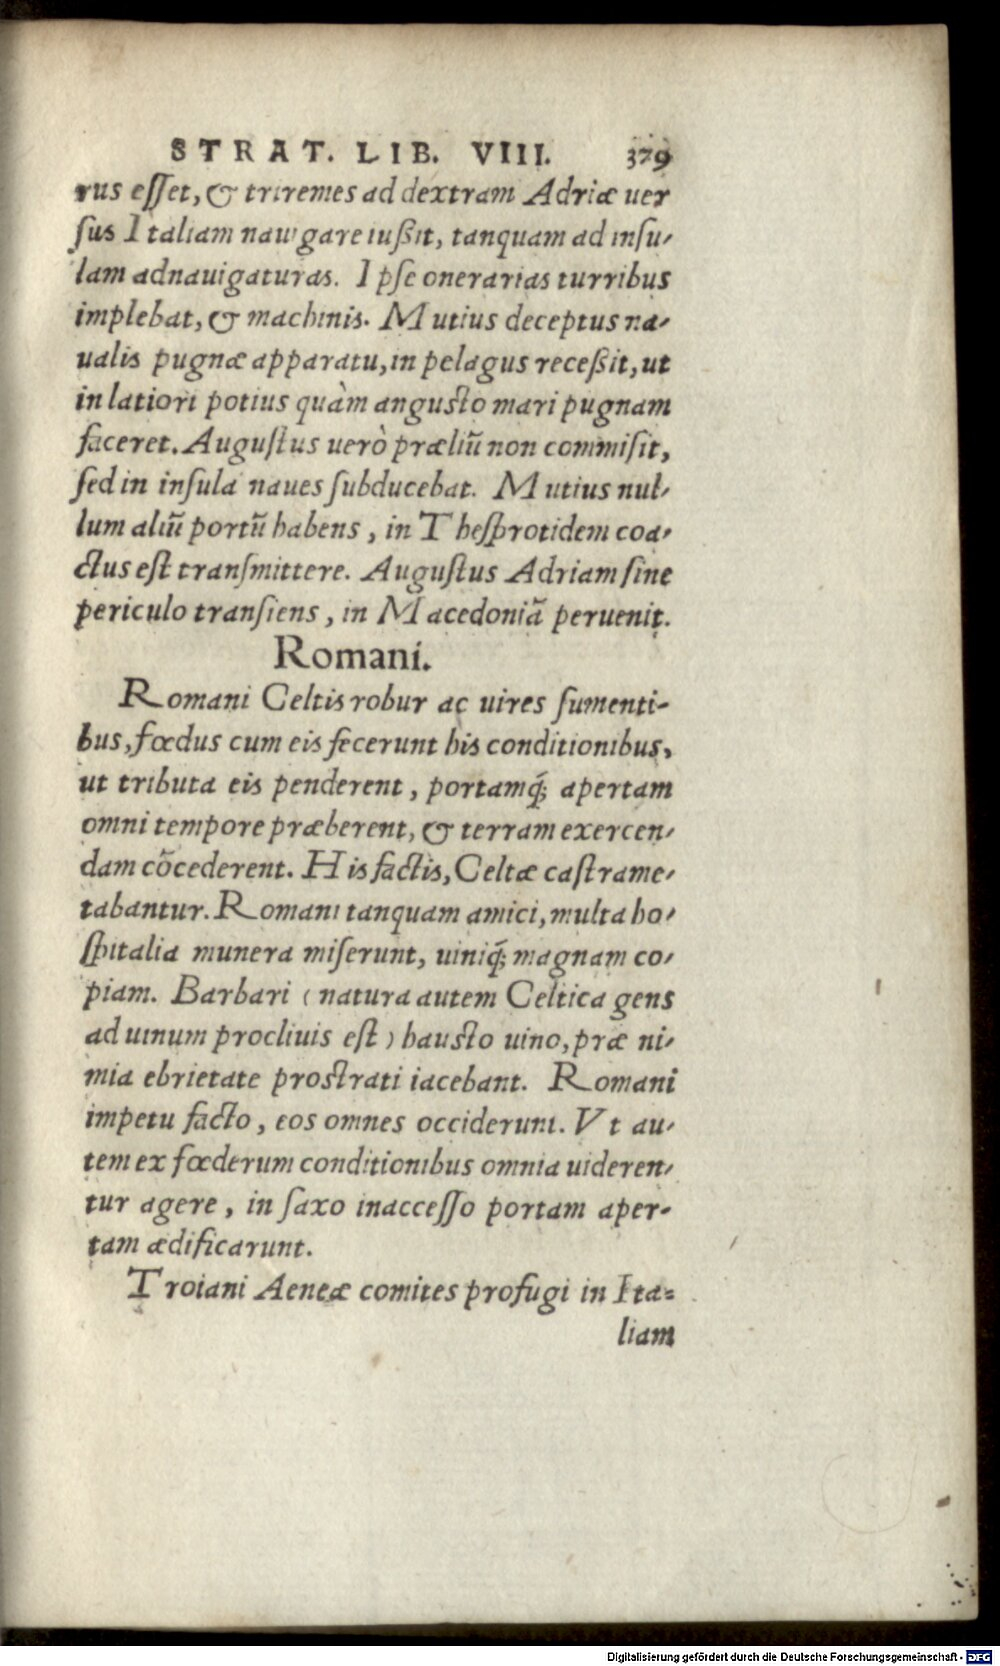 STRAT. LIB. VIII. 379
rus esset, & triremes ad dextram Adriæ uer
sus Italiam nauigare iußit, tanquam ad insu-
lam adnauigaturas. Ipse onerarias turribus
implebat, & machinis. Mutius deceptus na-
ualis pugnæ apparatu, in pelagus receßit, ut
in latiori potius quàm angusto mari pugnam
faceret. Augustus uerò præliũ non commisit,
sed in insula naues subducebat. Mutius nul-
lum aliũ portũ habens, in Thesprotidem coa-
ctus est transmittere. Augustus Adriam sine
periculo transiens, in Macedoniã peruenit.
Romani.
Romani Celtis robur ac uires sumenti-
bus, fœdus cum eis fecerunt his conditionibus,
ut tributa eis penderent, portamq́; apertam
omni tempore præberent, & terram exercen-
dam cõcederent. His factis, Celtæ castrame-
tabantur. Romani tanquam amici, multa ho-
spitalia munera miserunt, uiniq́; magnam co-
piam. Barbari (natura autem Celtica gens
ad uinum procliuis est) hausto uino, præ ni-
mia ebrietate prostrati iacebant. Romani
impetu facto, eos omnes occiderunt. Vt au-
tem ex fœderum conditionibus omnia uideren-
tur agere, in saxo inaccesso portam aper-
tam ædificarunt.
Troiani Aeneæ comites profugi in Ita-
liam
Digitalisierung gefördert durch die Deutsche Forschungsgemeinschaft - DFG